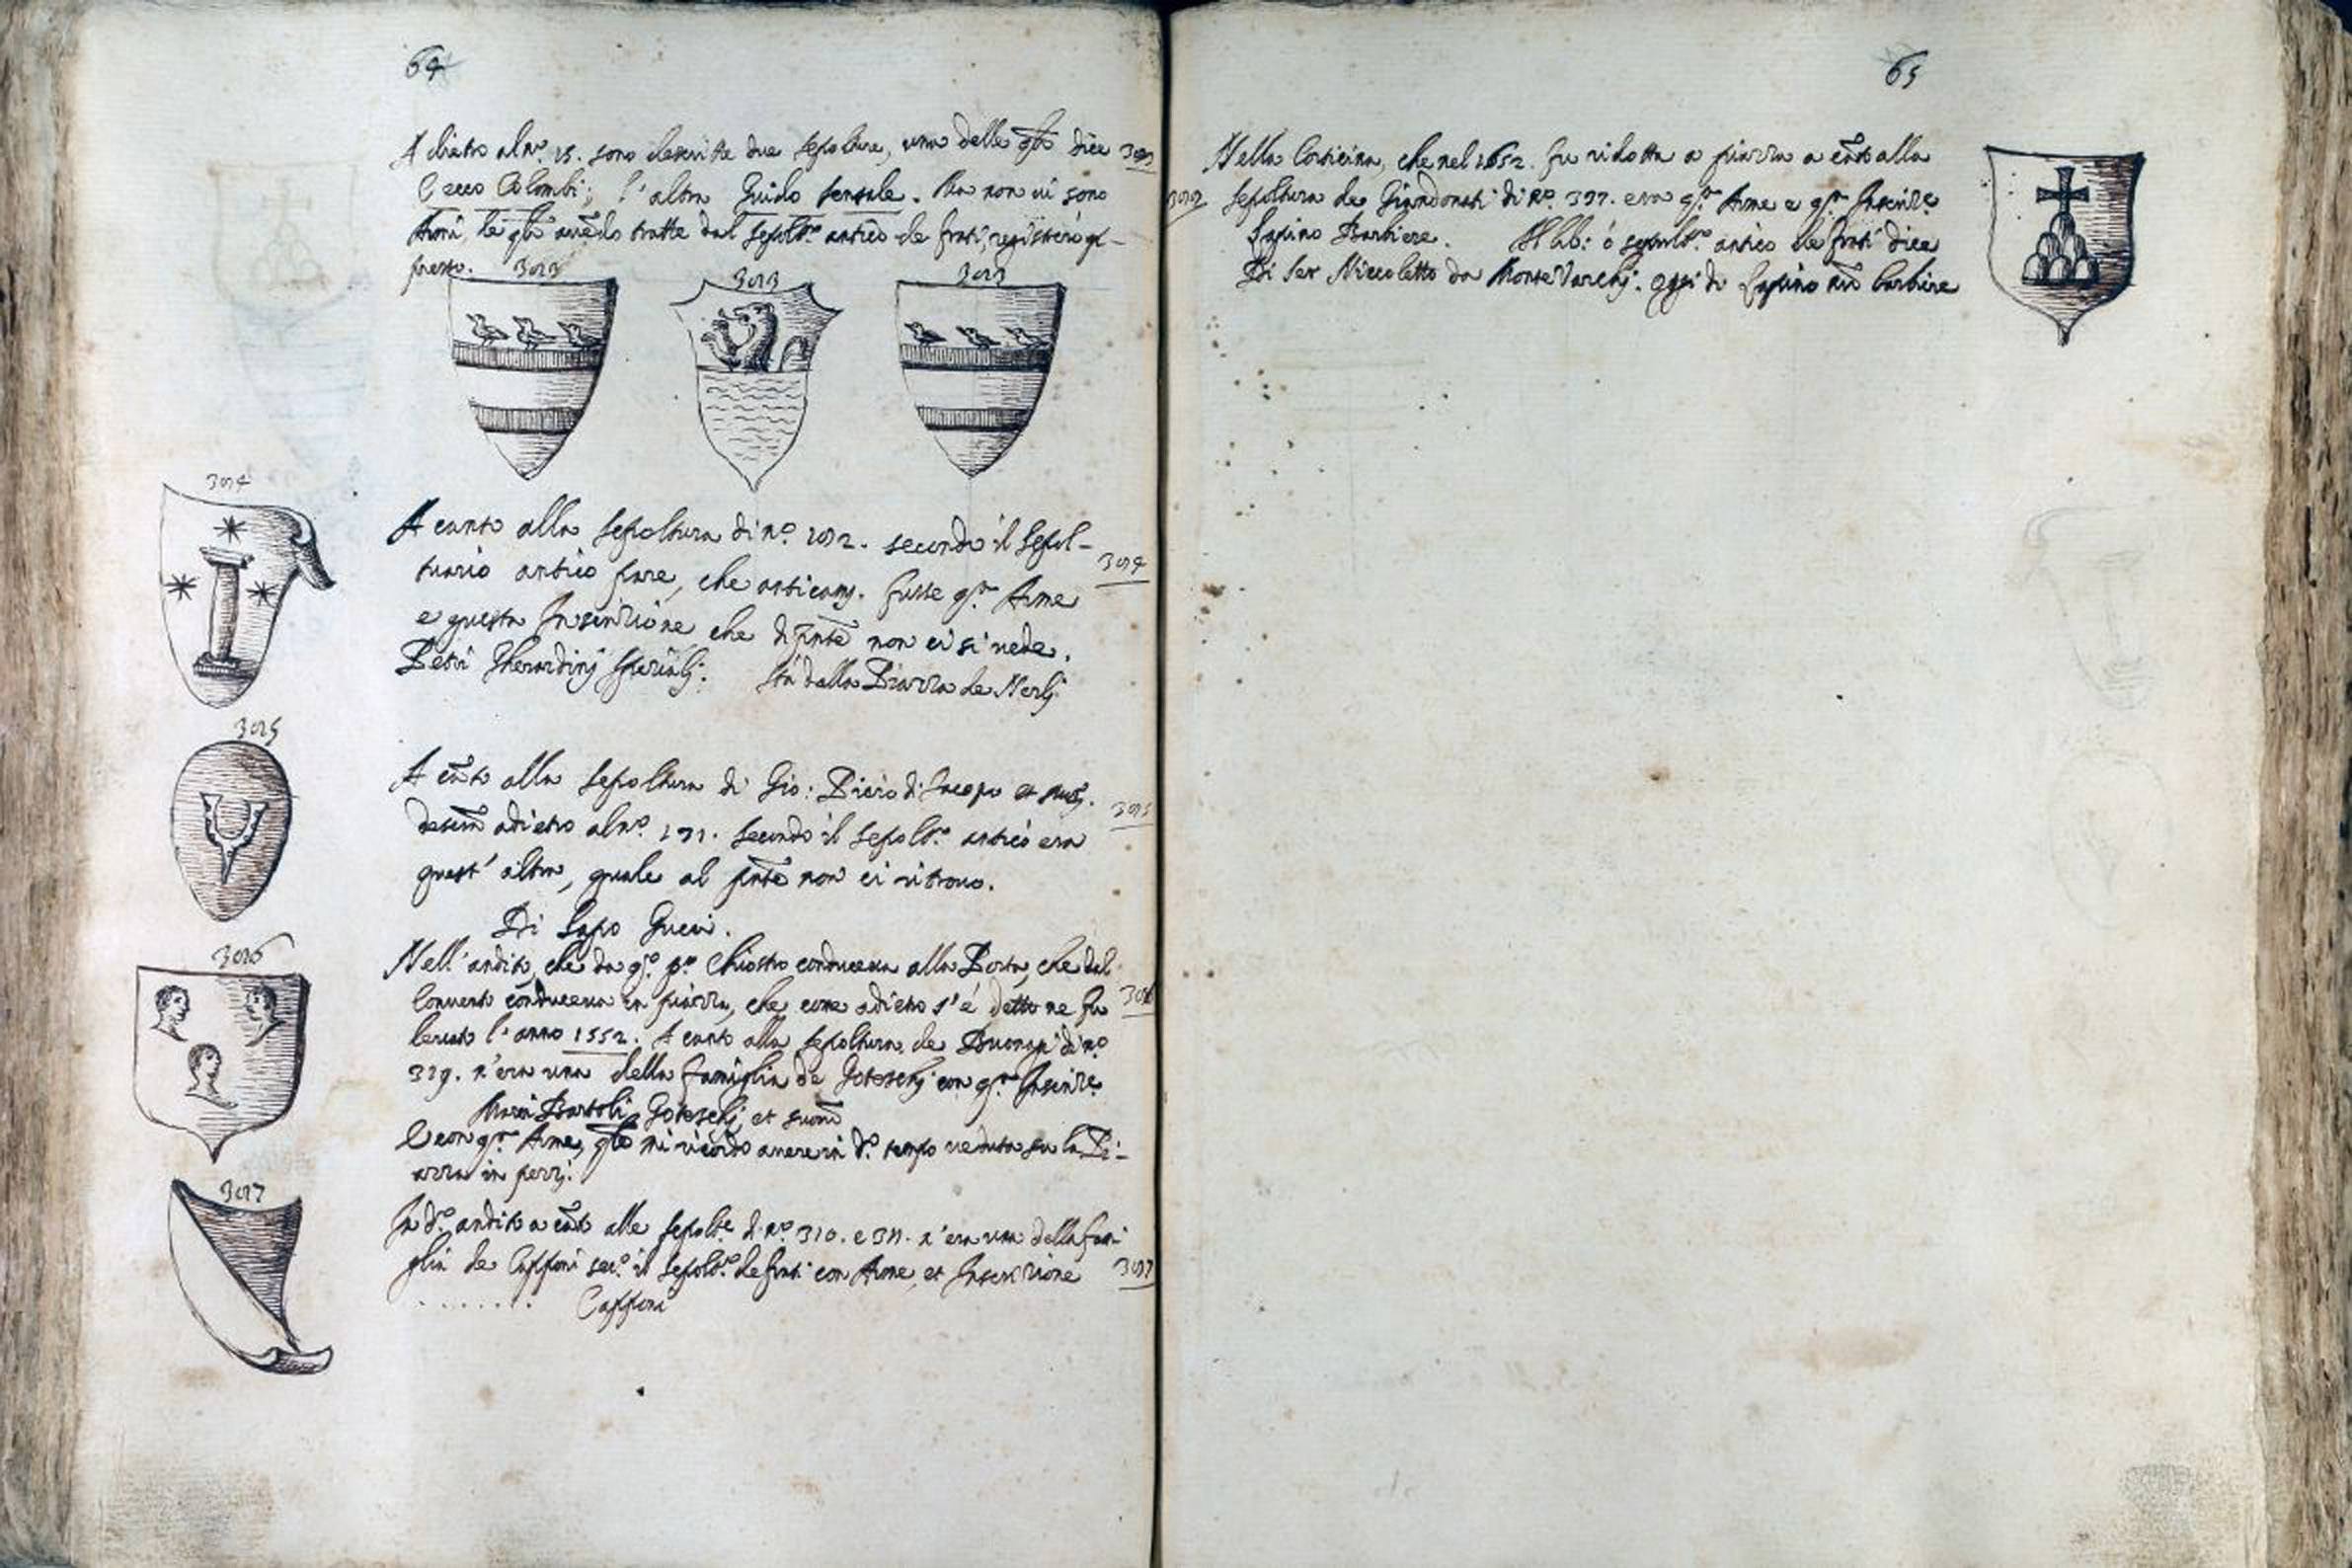 64
A dietro al nº. 15. sono descritte due sepolture, una delle qli dice
Cecco Colombi; l'altra Guido sensale. Ma non vi sono
Armi, le qli avedo tratte dal sepoltº. antico de frati, registrerò qi
presto.
3013 3013 3013
3014
A canto alla sepoltura di nº. 1012. secondo il sepol-
tuario antico pare, che anticamj. fusse qta Arme
e questa Inscrizione che di pnte non ci si vede.
Petri Gherardinj spetialj: sta dalla Piazza de Nerlj
3014
3015
A cato alla sepoltura di Gio: Piero di Jacopo et suoȝ.
descra adietro al nº. 171. secondo il sepoltº. antico era
quest'altra, quale al pnte non ci ritrovo.
Di Lapo Gucci.
3015
3016
Nell'andito, che da qto pº Chiostro conduceva alla Porta, che dal
Convento conduceva in piazza, che come adietro s'è detto ne fu
levato l'anno 1552. A canto alla sepoltura de Buonapi di nº
319. n'era una della famiglia de Gotteschj con qta Inscrize
Marci Bartoli Gotteschj et suorū
E con qta Arme, qle mi ricordo avere in dº. tempo veduta su la Pi-
azza in pezzj.
3016
3017
In dº. andito a cato alle sepolte di nº. 310. e 311. n'era una della fami
glia de Capponi secº. il sepoltº. de frati con Arme, et Inscrizione
. . . . . . . Capponi
3017
65
Nella Corticina, che nel 1652. fu ridotta a piazza a cato alla
sepoltura de Giandonati di nº. 397. era qta Arme e qta Inscrize
Lapino Barbiere. Il lib: o sepultº. antico de frati dice
Di Ser Niccoletto da Montevarchj. oggi di Lapino barbiere